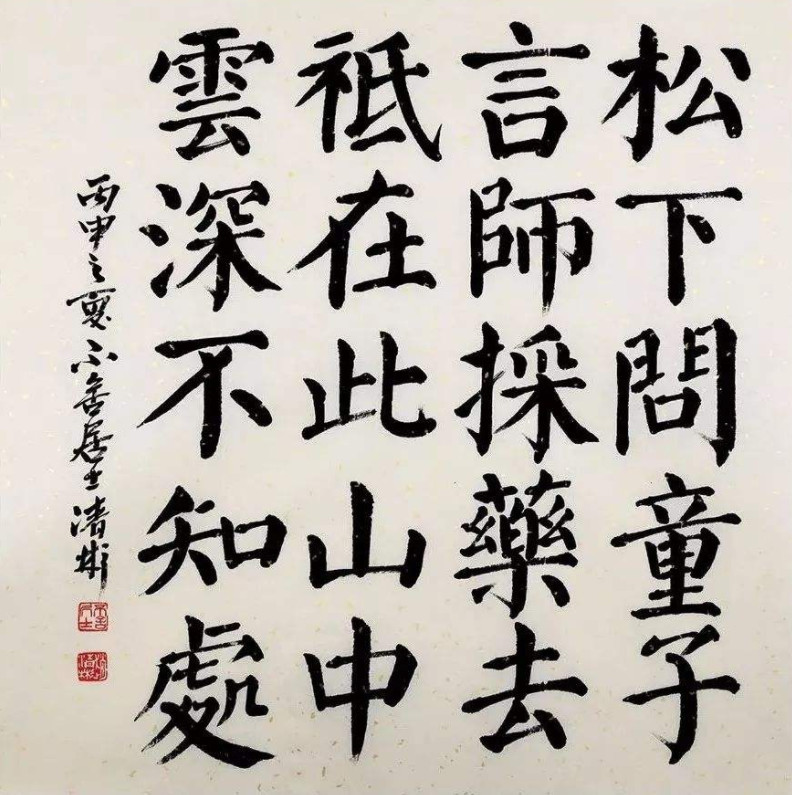 松下問童子
言師採藥去
祗在此山中
雲深不知處
丙申之夏不舍居士清彬